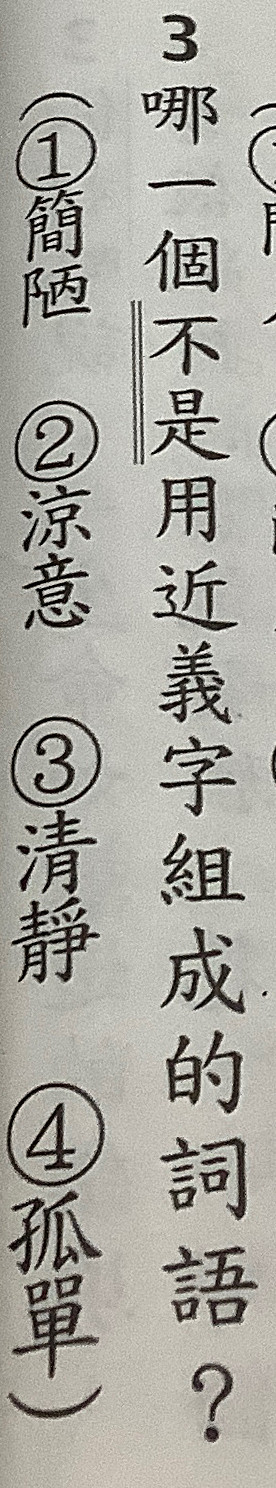 3 哪一個不是用近義字組成的詞語？
（①簡陋 ②涼意 ③清靜 ④孤單）